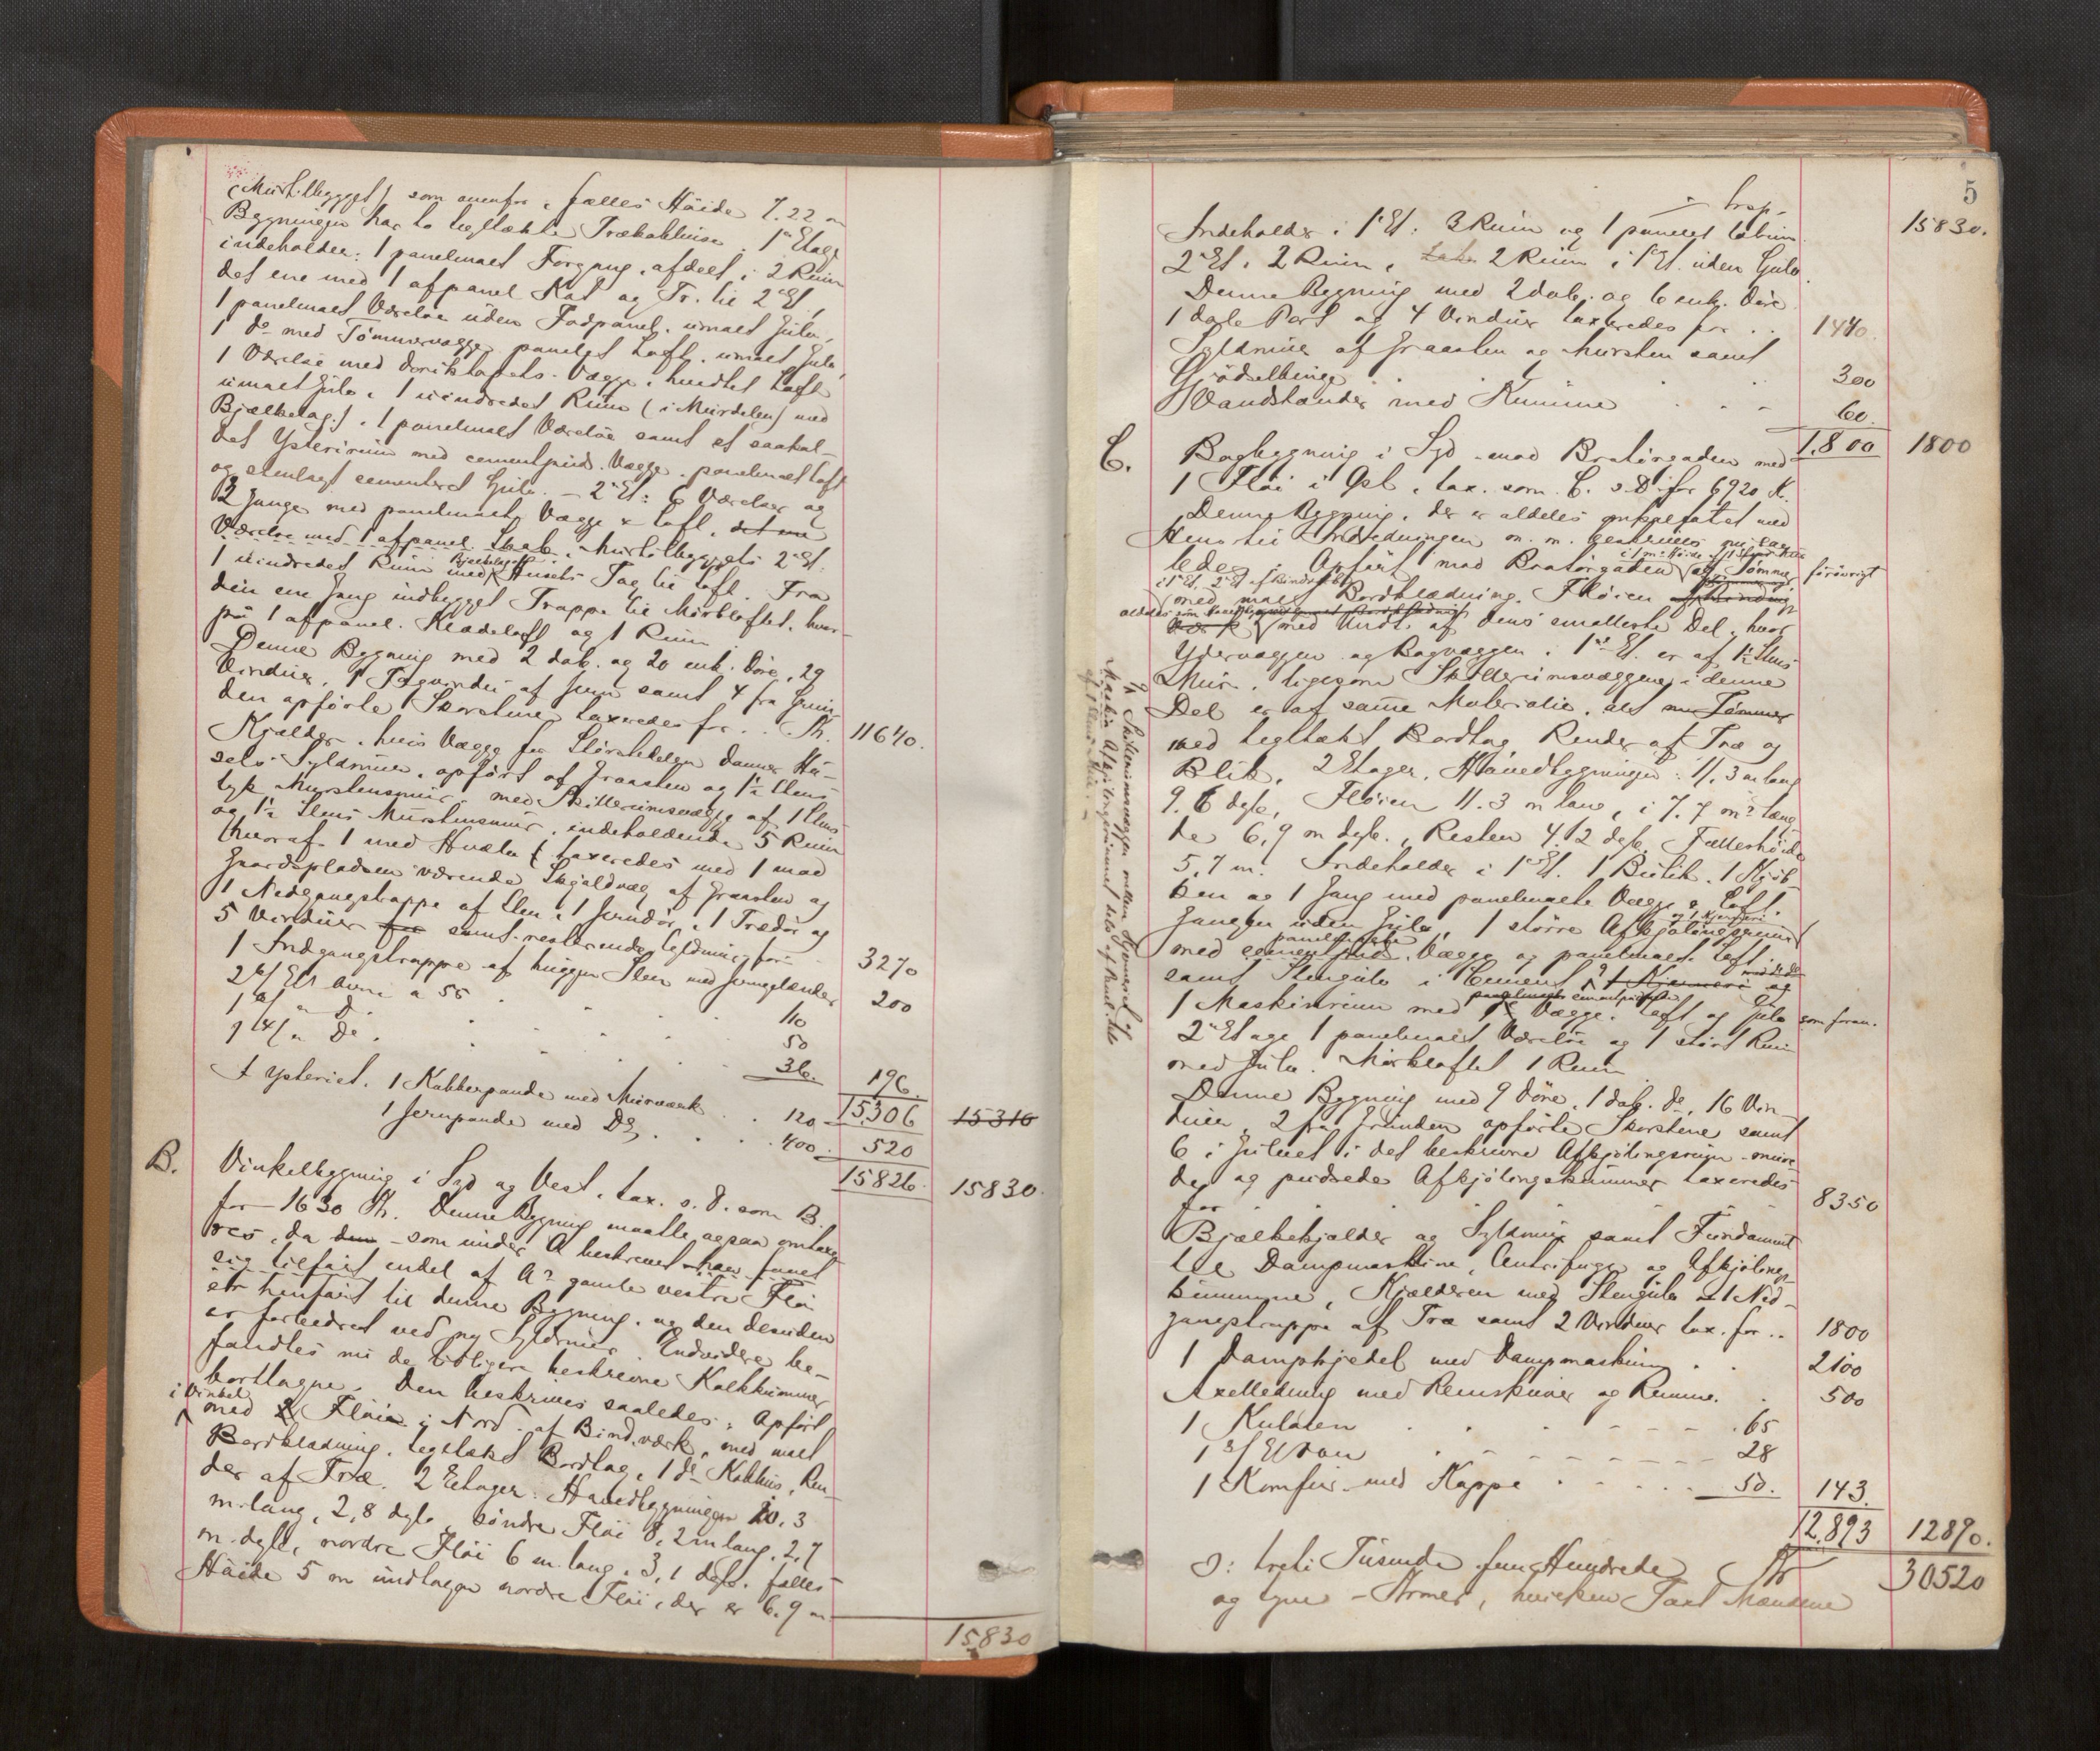 (Murtilbygget) som ovenfor, fælles Höide 7.22 m
Bygningen har to tegltækte Trækakkhuse. 1ste Etage
indeholder: 1 panelmalt Forgang, afdeelt i 2 Rum
det ene med 1 afpanel. Kat og Tr. til 2 Et,
1 panelmalt Værelse uden Fodpanel, umalt Gulv,
1 do med Tömmervægge, panelet Loft, umalt Gulv,
1 Værelse med Voristapets. Vægge, hvidtet Loft
umalt Gulv, 1 uindredet Rum (i Murdelen) med
Bjælkelag). 1 panelmalt Værelse samt et saakal-
det Ysterirum med cementpuds. Vægge, panelmalt Loft
og stenlagt cementeret Gulv. – 2 Et: 6 Værelser og
2 Gange med panelmalte Vægge & Loft, det ene
Værelse med 1 afpanel. Skab. Murtilbyggets 2 Et:
1 uindredet Rum med Bjælkelag & Husets Tag til Loft. Fra
den ene Gang indbygget Trappe til Mörkloftet, hvor-
på 1 afpanel. Klædeloft og 1 Rum.
Denne Bygning med 2 dob. og 20 enk. Döre, 29
Vinduer, 1 Tagvindu af Jern samt 4 fra Grun-
den opförte Skorstene taxeredes for . . Kr. 11640.
Kjælder, hvis Vægge for Störstedelen danner Hu-
sets Syldmur, opfört af Graasten og 1½ Stens
tyk Murstensmur, med Skillerumsvægge af 1 Stens
og 1½ Stens Murstensmur, indeholdende 5 Rum
(hvoraf 1 med Hvælv) taxeredes med 1 mod
Gaardspladsen værende Skjoldvæg af Graasten og
1 Nedgangstrappe af Sten, 1 Jerndör, 1 Trædör og
5 Vinduer for samt resterende Syldmur for 3270
1 Indgangstrappe af huggen Sten med Jerngelænder 200
2 3/ Et Ovne a 55 . . . . 110
1 3/ „ Do . . . . 50
1 4/ „ Do . . . . 36. 196.
15.306 15316
I Ysteriet. 1 Kobberpande med Murværk . . 120
1 Jernpande med Do . . . 400. 520
15826. 15830.
B. Vinkelbygning i Syd og Vest, tax. s. D. som B.
for 1630 Kr. Denne Bygning maatte ogsaa omtaxe-
res, da den som under A beskrevet har faaet
sig tilföiet endel af As gamle vestre Flöi
er henfört til denne Bygning, og den desuden
er forbedret ved ny Syldmur. Endvidere be-
fandtes nu de tidligere beskrevne Kalkkummer
borttagne. Den beskrives saaledes: Opfört
i Vinkel
med 2 Flöie i Nord af Bindværk, med malt
Bordklædning, tegltækt Bordtag, 1 do Kakhus, Ren-
der af Træ. 2 Etager. Hovedbygningen 20,3
m. lang, 2,8 dyb, söndre Flöi 8,2 m lang, 2,7
m. dyb, nordre Flöi 6 m. lang, 3,1 dyb. fælles
Höide 5 m undtagen nordre Flöi, der er 6.9 m.
15830
5
trap-
15830.
Indeholder i 1 Et: 3 Rum og 1 panelet
2 Et. 2 Rum, 2 Rum i 1 Et. uden Gulv.
Denne Bygning med 2 dob. og 6 enk. Döre
1 dob Port og 4 Vinduer taxeredes for . . 1440.
Syldmur af Graasten og Mursten samt
Gjödselbinge . . . . 300
1 Vandstænder med Kumme . . - 60.
1.800 1800
C. Bagbygning i Syd mod Bratörgaden med
1 Flöi i Öst, tax. som C. s. D. for 6920 Kr.
Denne Bygning, der er aldeles ombyttet med
Hensyn til Indredningen m. m. beskrives nu saa-
ledes: Opfört mod Bratörgaden af Tömmer, forövrigt
i 1 Et, 2 Et af Bindværk
med malt Bordklædning. Flöien
med Undt. af dens smalleste Del, hvor
Ydervæggen og Bagvæggen i 1ste Et. er af 1½ Stens
Mur, ligesom Skillerumsvæggene i denne
Del er af samme Materialie. Alt m. Tömmer
med tegltækt Bordtag, Render af Træ og
Blik. 2 Etager, Hovedbygningen: 11,3 m lang
9.6 dyb, Flöien 11.3 m lang, i 7.7 ms Læng-
de 6,9 m dyb., Resten 4.2 dyb, Fælleshöide
5.7 m. Indeholder i 1 Et. 1 Butik, 1 Kjök-
ken og 1 Gang med panelmalte Vægge & Loft,
Gangen uden Gulv, 1 större Afkjölingsrum og 1 Kjerneri
med cementpud. Vægge og panelmalt Loft
samt Stengulv i Cement & 1 Kjerneri og
1 Maskinrum med Vægge, Loft og Gulv som foran.
2 Etage 1 panelmalt Værelse og 1 stort Rum
med Gulv. Mörkloftet 1 Rum
Denne Bygning med 9 Döre, 1 dob. do, 16 Vin-
duer, 2 fra Grunden opförte Skorstene samt
6 i Gulvet i det beskrevne Afkjölingsrum mure-
de og pudsede Afkjölingskummer taxeredes
for . . . . 8350
Bjælkekjælder og Syldmur samt Fundament
til Dampmaskine, Centrifuge og Afkjölings-
kummene, Kjælderen med Stengulv & 1 Ned-
gangstrappe af Træ samt 2 Vinduer tax. for . . 1800
1 Dampkjedel med Dampmaskine . . 2100
Axelledning med Remskiver og Remme . . 500
1 Kulovn . . . . . 65
1 3/ Et Ovn . . . . 28
1 Komfur med Kappe . . . 50. 143.
12.893 12890.
ɔ: treti Tusinde fem Hundrede Kr 30520
og tyve Kroner, hvilken Taxt Mændene
& Skillerumsvæggen mellem Kjerneriet og
Maskin & Afkjölingsrummet